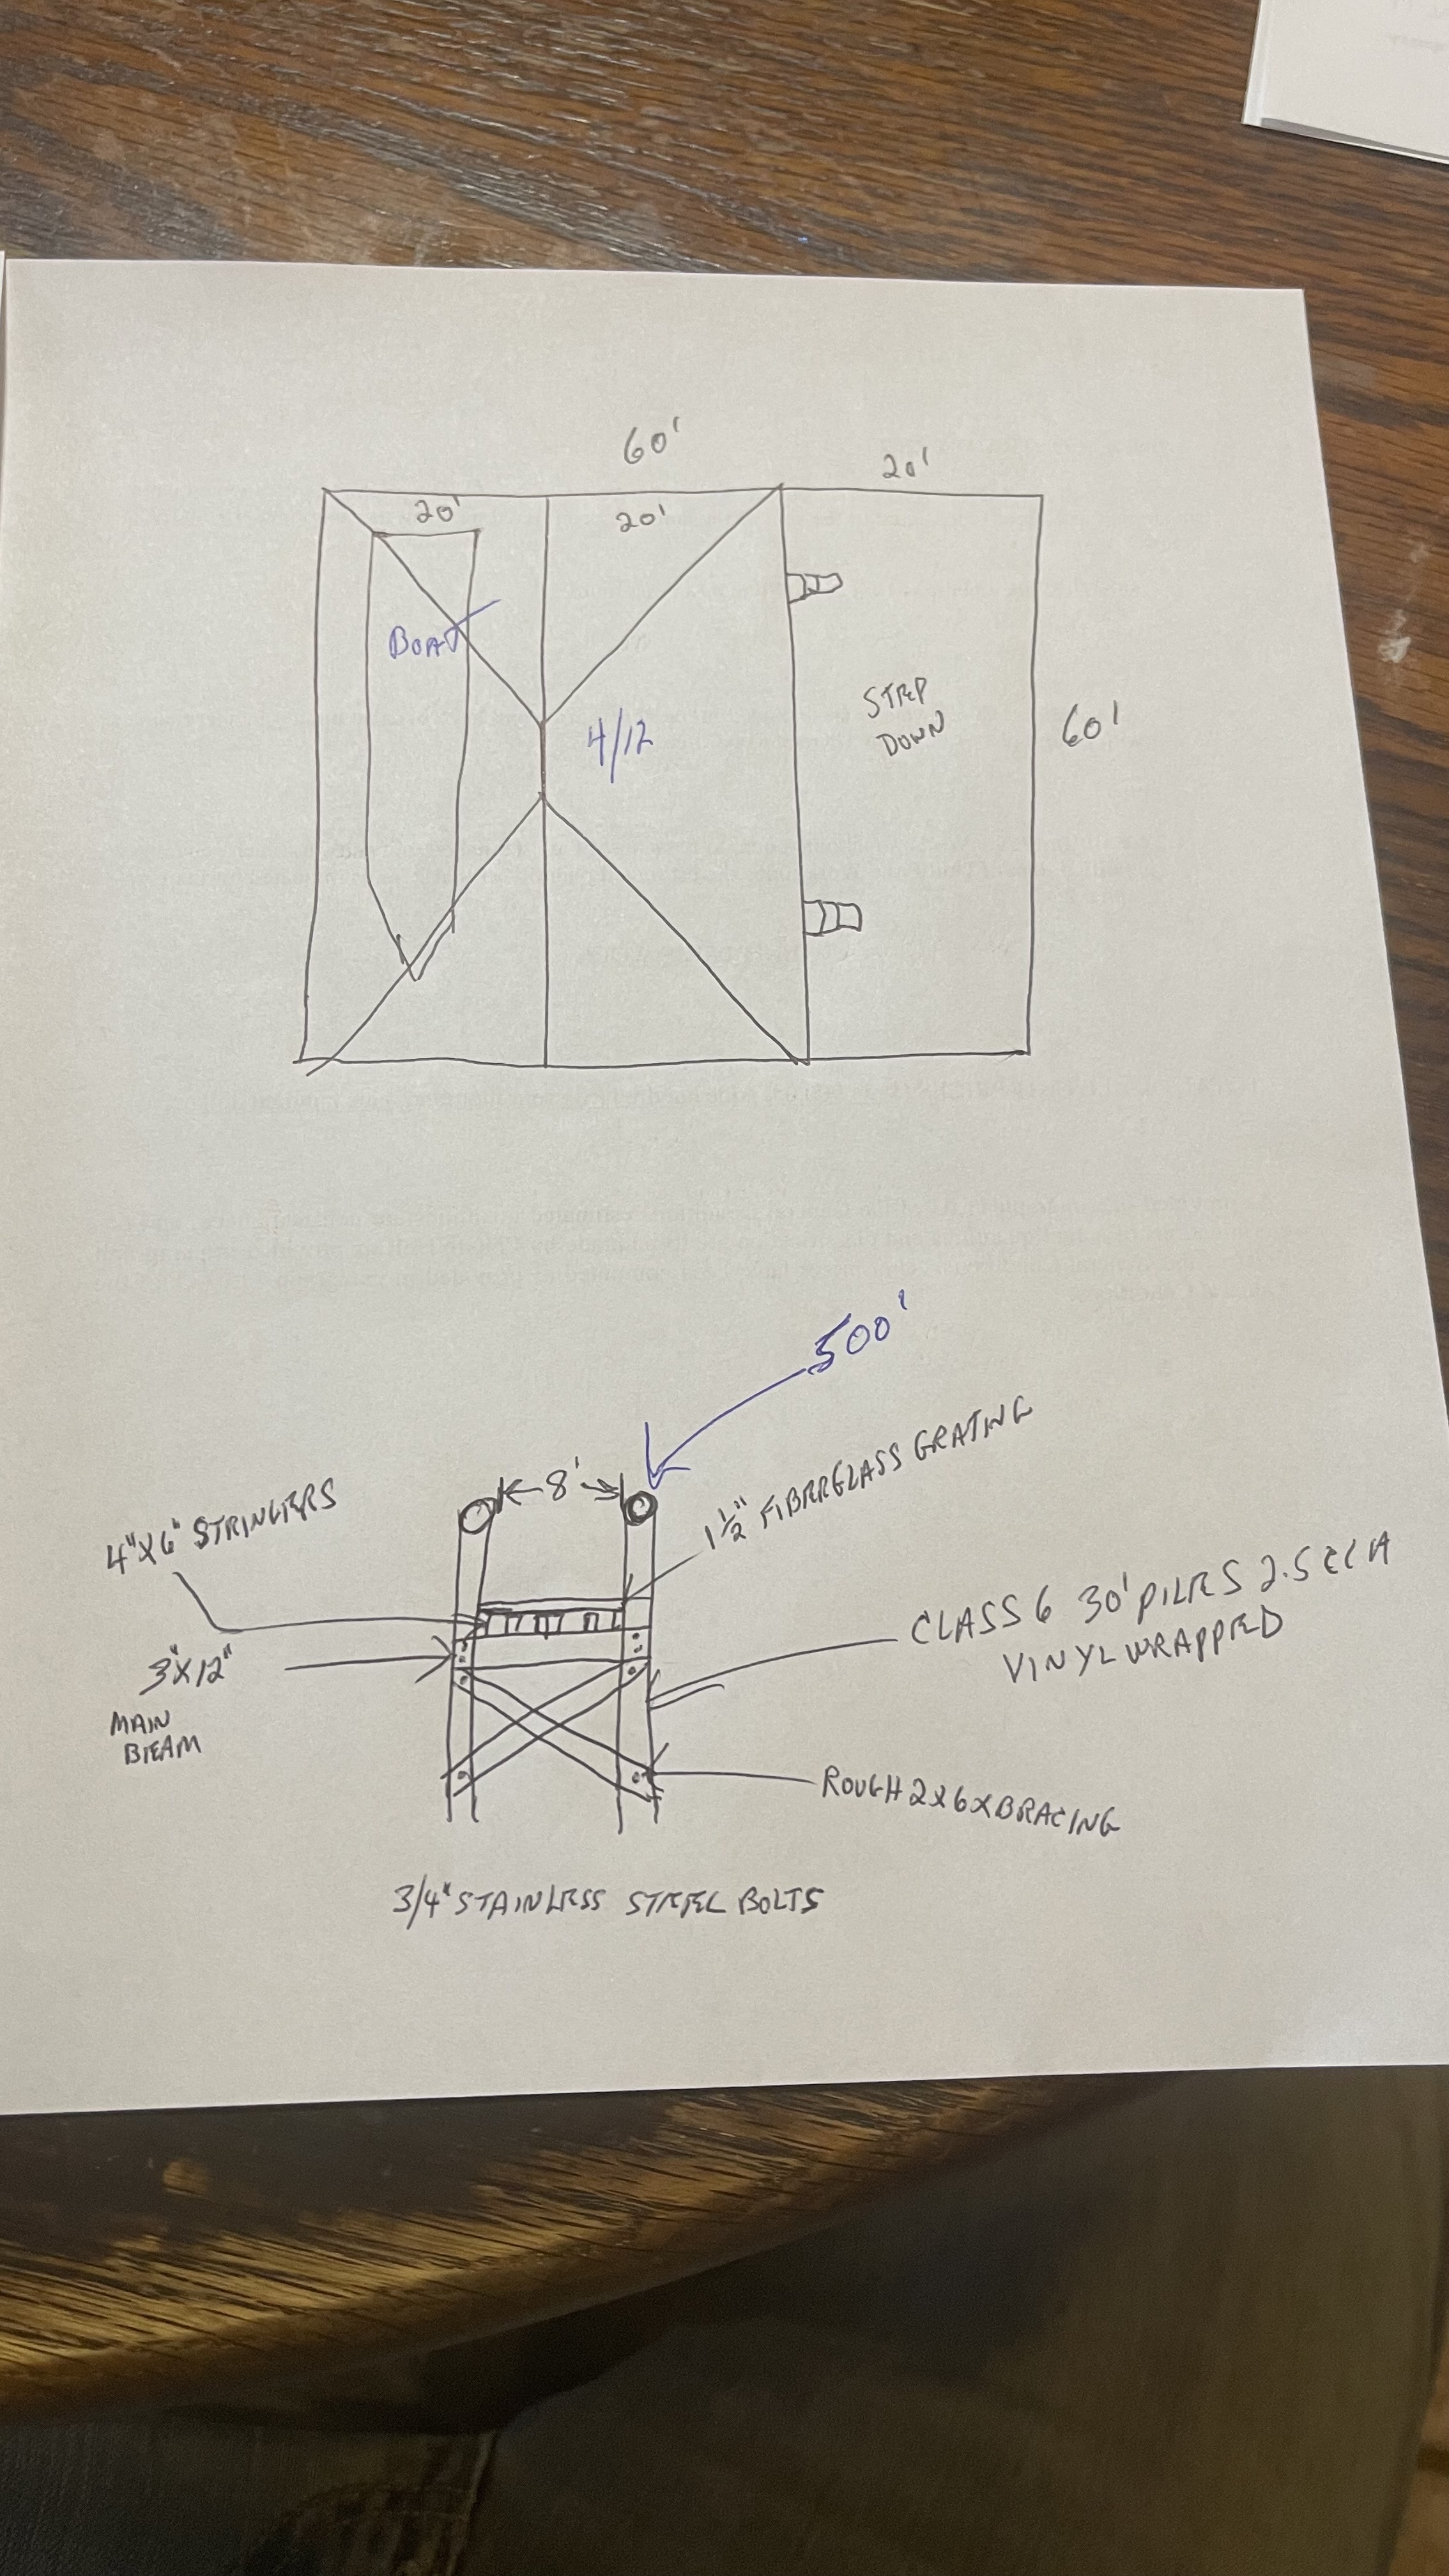 60'
20'
20'
20'
BOAT
4/12
STEP
DOWN
60'
500'
8'
1 1/2" FIBERGLASS GRATING
4"X6" STRINGERS
CLASS 6 30' PILES 2.5 CCA
VINYL WRAPPED
3"X12"
MAIN
BEAM
ROUGH 2X6 X BRACING
3/4" STAINLESS STEEL BOLTS